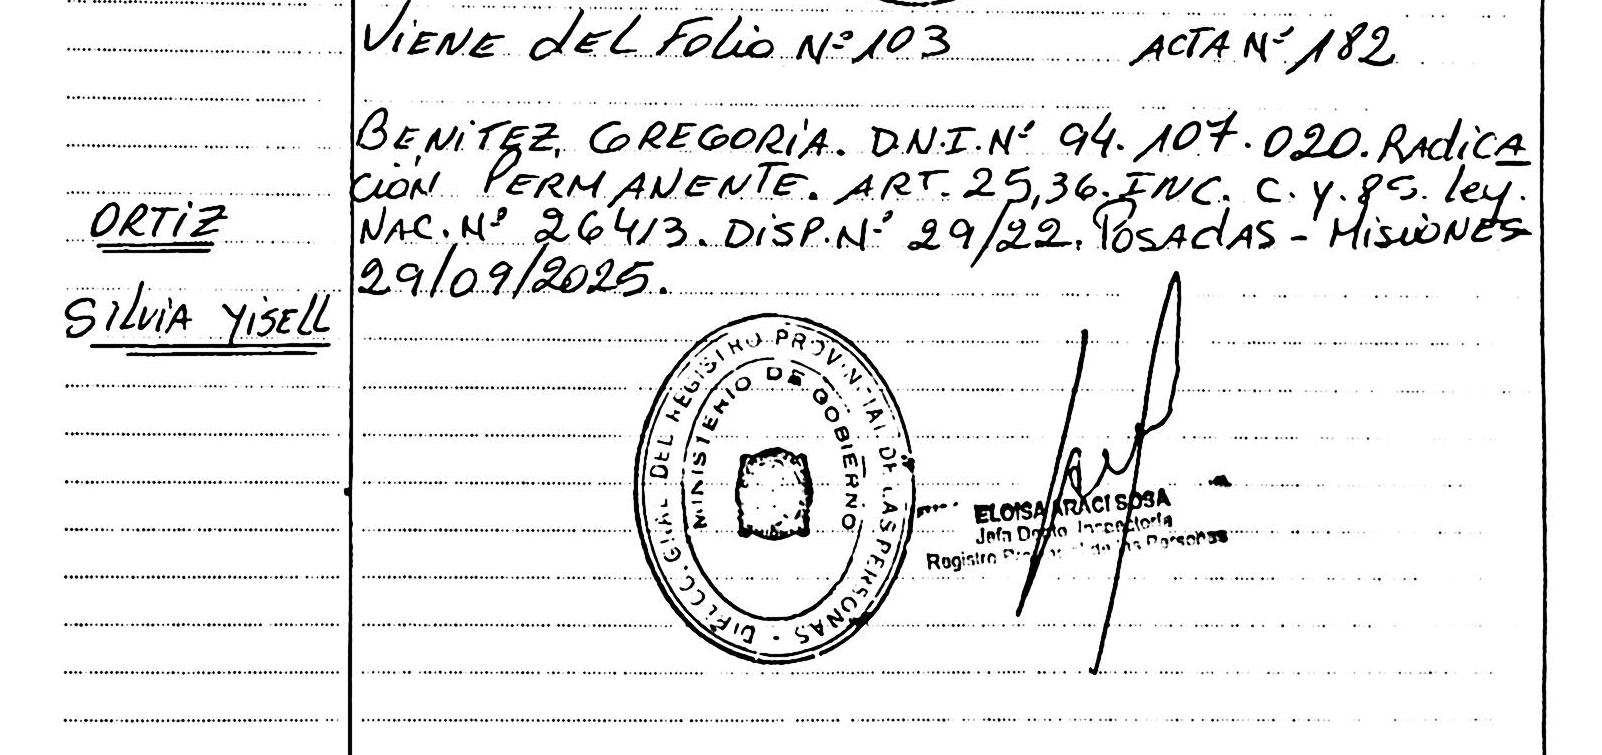 Viene del Folio Nº 103 ACTA Nº 182
BENITEZ, GREGORIA. D.N.I. Nº 94.107.020. RAdicA
ción PERMANENTE. ART. 25,36. INC. C. y. 85. ley.
NAC. Nº 26413. DISP. Nº 29/22. POSADAS - MISIONES
29/09/2025.
ORTIZ
SILVIA YISELL
DIRECC. GRAL DEL REGISTRO PROVINCIAL DE LAS PERSONAS
MINISTERIO DE GOBIERNO
ELOISA ARACI SOSA
Jefa Depto Inspectoría
Registro Provincial de las Personas